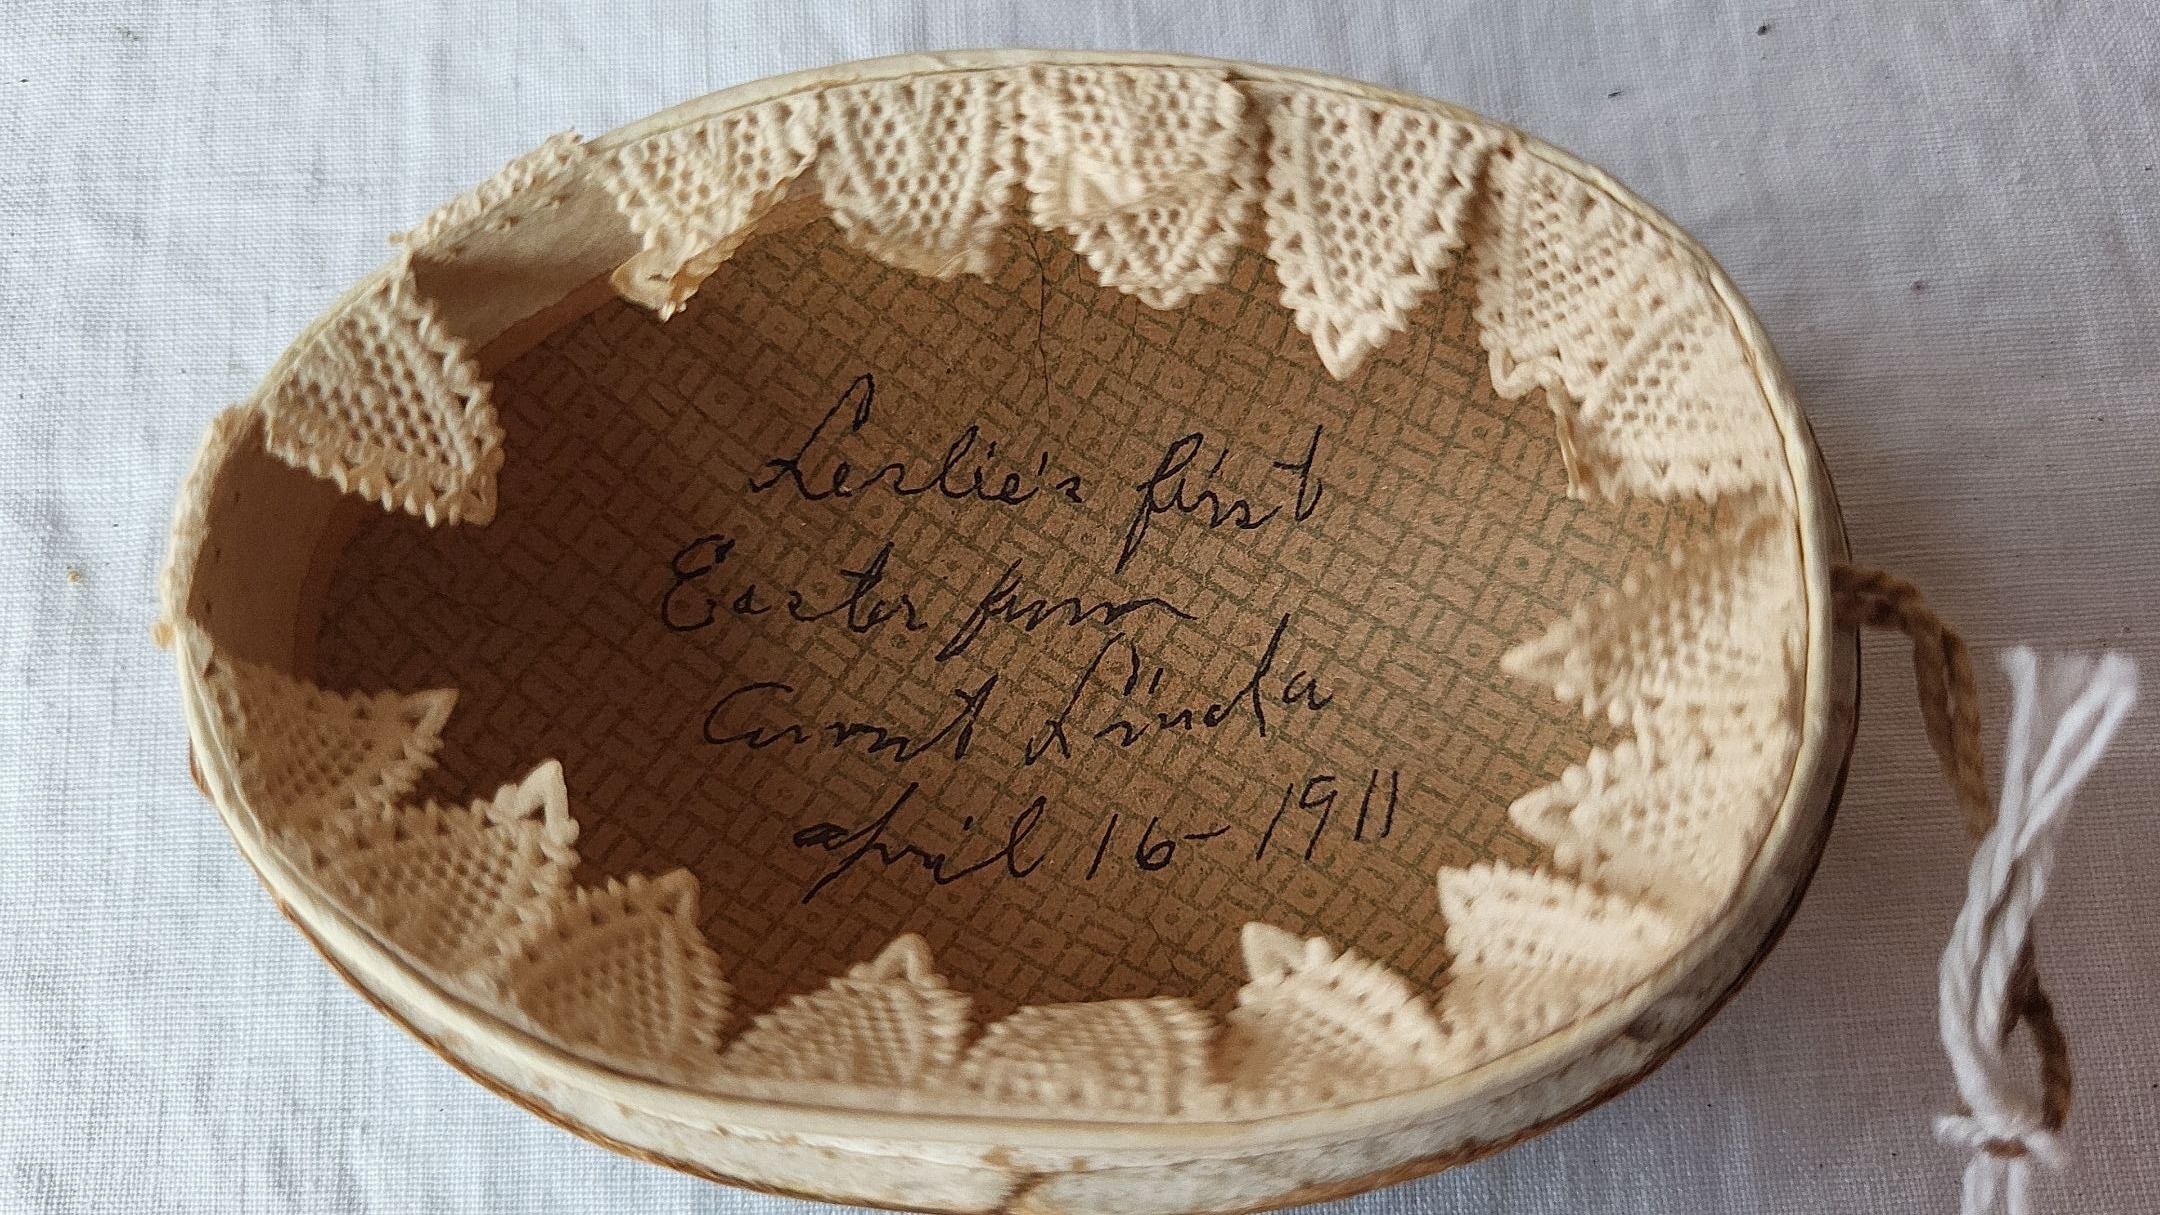 Leslie's first
Easter from
Aunt Linda
April 16-1911